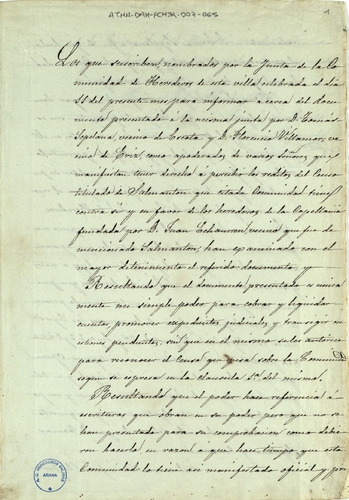 ATHA-DAH-FCHJA-007-065
1
Los que suscriben, nombrados por la Junta de la Co
munidad de Herederos de esta villa celebrada el dia
15 del presente mes para informar acerca del docu
mento presentado á la misma junta por D. Tomás
vecino de y D. Florencio Villamor, ve
cino de como apoderados de varios Señores que
manifiestan tener derecho á percibir los reditos del Censo
titulado de Salmanton que esta Comunidad tiene
contra sí y en favor de los herederos de la Capellania
fundada por D. Juan vecino que fué de
mencionado Salmanton, han examinado con el
mayor detenimiento el referido documento y
Resultando que el documento presentado es unica
mente un simple poder para cobrar y liquidar
cuentas, promover expedientes judiciales, y transigir cu
estiones pendientes, sin que en el mismo se les autorice
para reconocer el Censo que pesa sobre la Comunidad
segun se espresa en la clausula 5ª del mismo.
Resultando que el poder hace referencia á
escrituras que obran en su poder pero que no se
han presentado para su comprobacion como debie
ron hacerlo en razon á que hace tiempo que esta
Comunidad lo tiene asi manifestado oficial y
ARABA